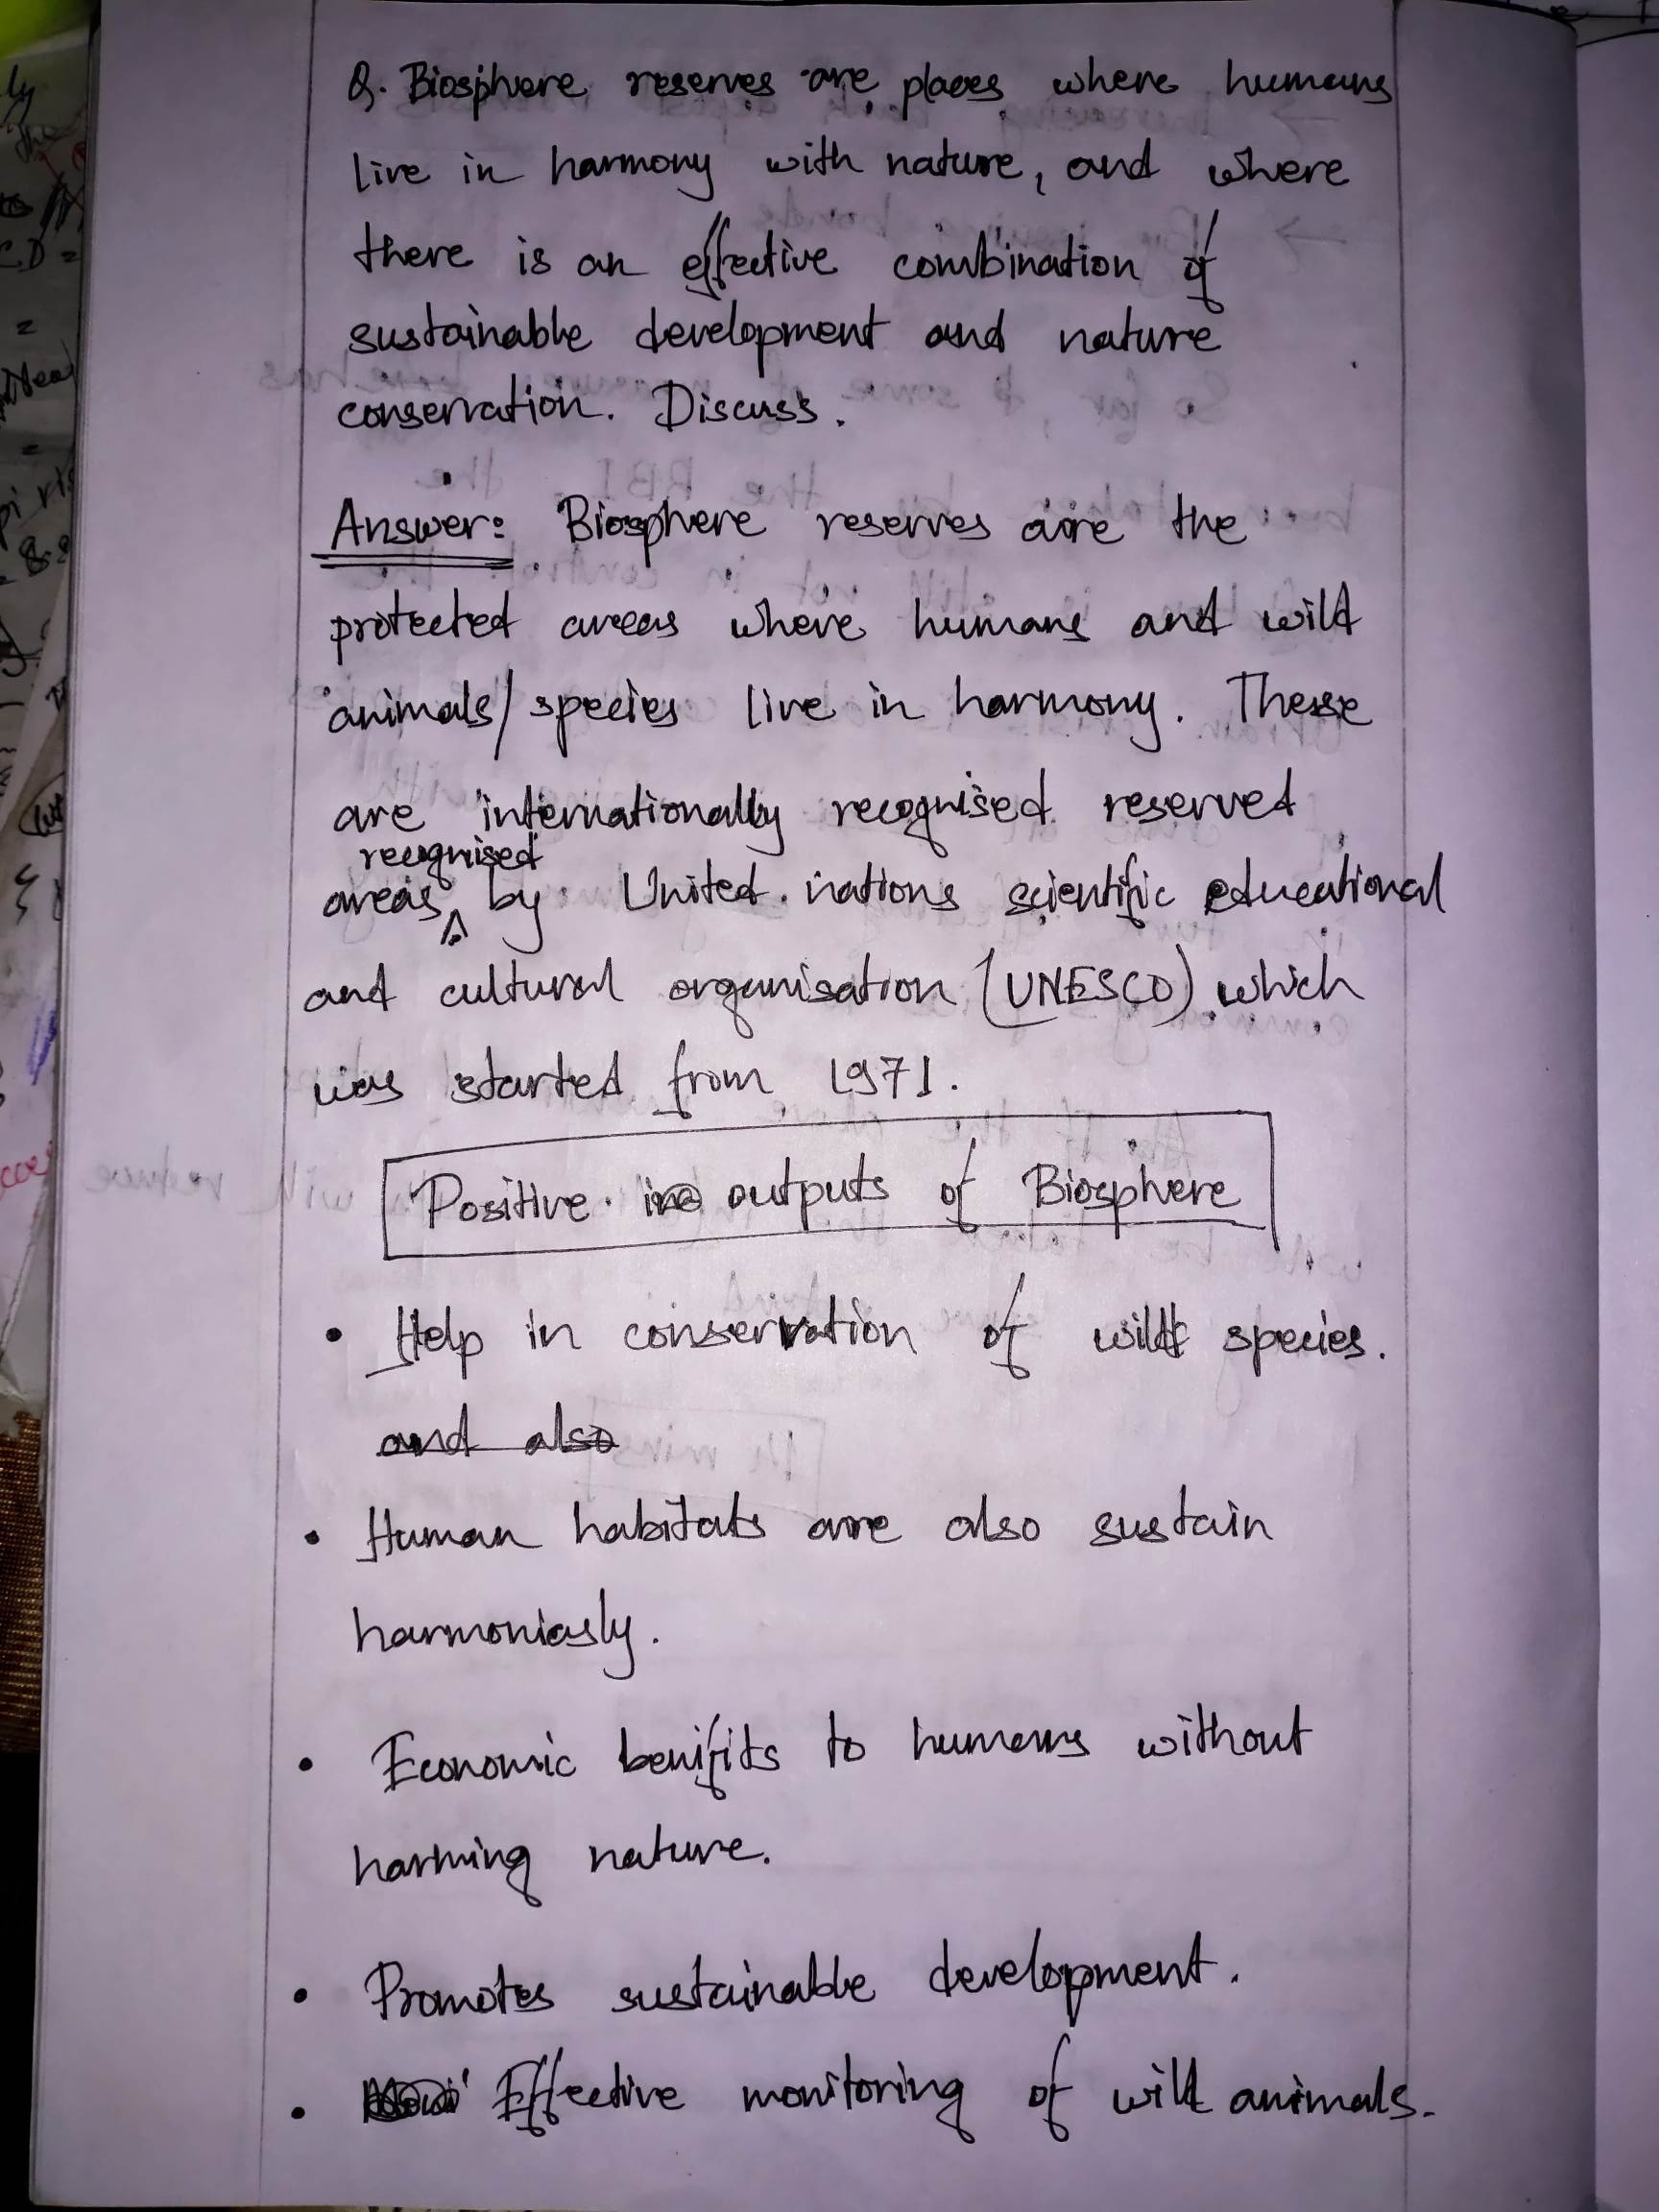 Q. Biosphere reserves are places where humans
live in harmony with nature, and where
there is an effective combination of
sustainable development and nature
conservation. Discuss.
Answer: Biosphere reserves are the
protected areas where humans and wild
animals/species live in harmony. These
are internationally recognised reserved
recognised
areas by United nations scientific educational
and cultural organisation (UNESCO) which
was started from 1971.
Positive outputs of Biosphere
• Help in conservation of wild species.
and also
• Human habitats are also sustain
harmoniasly.
• Economic benifits to humans without
harming nature.
• Promotes sustainable development.
• Effective monitoring of wild animals.